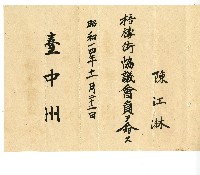 陳江淋
梧棲街協議會員ヲ命ス
昭和一四年十一月二十二日
臺中州